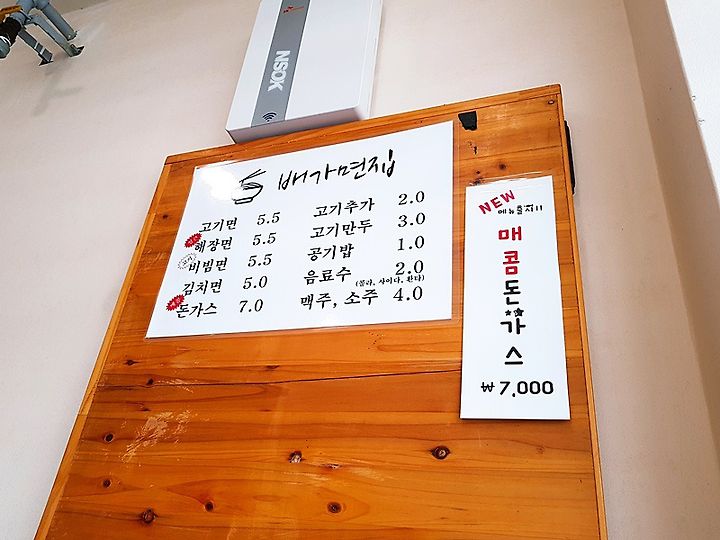 SK
NSOK
배가면집
고기면 5.5
해장면 5.5
비빔면 5.5
김치면 5.0
돈가스 7.0
고기추가 2.0
고기만두 3.0
공기밥 1.0
음료수 2.0
(콜라, 사이다, 환타)
맥주, 소주 4.0
NEW
메뉴출시!!
매콤돈가스
₩7,000